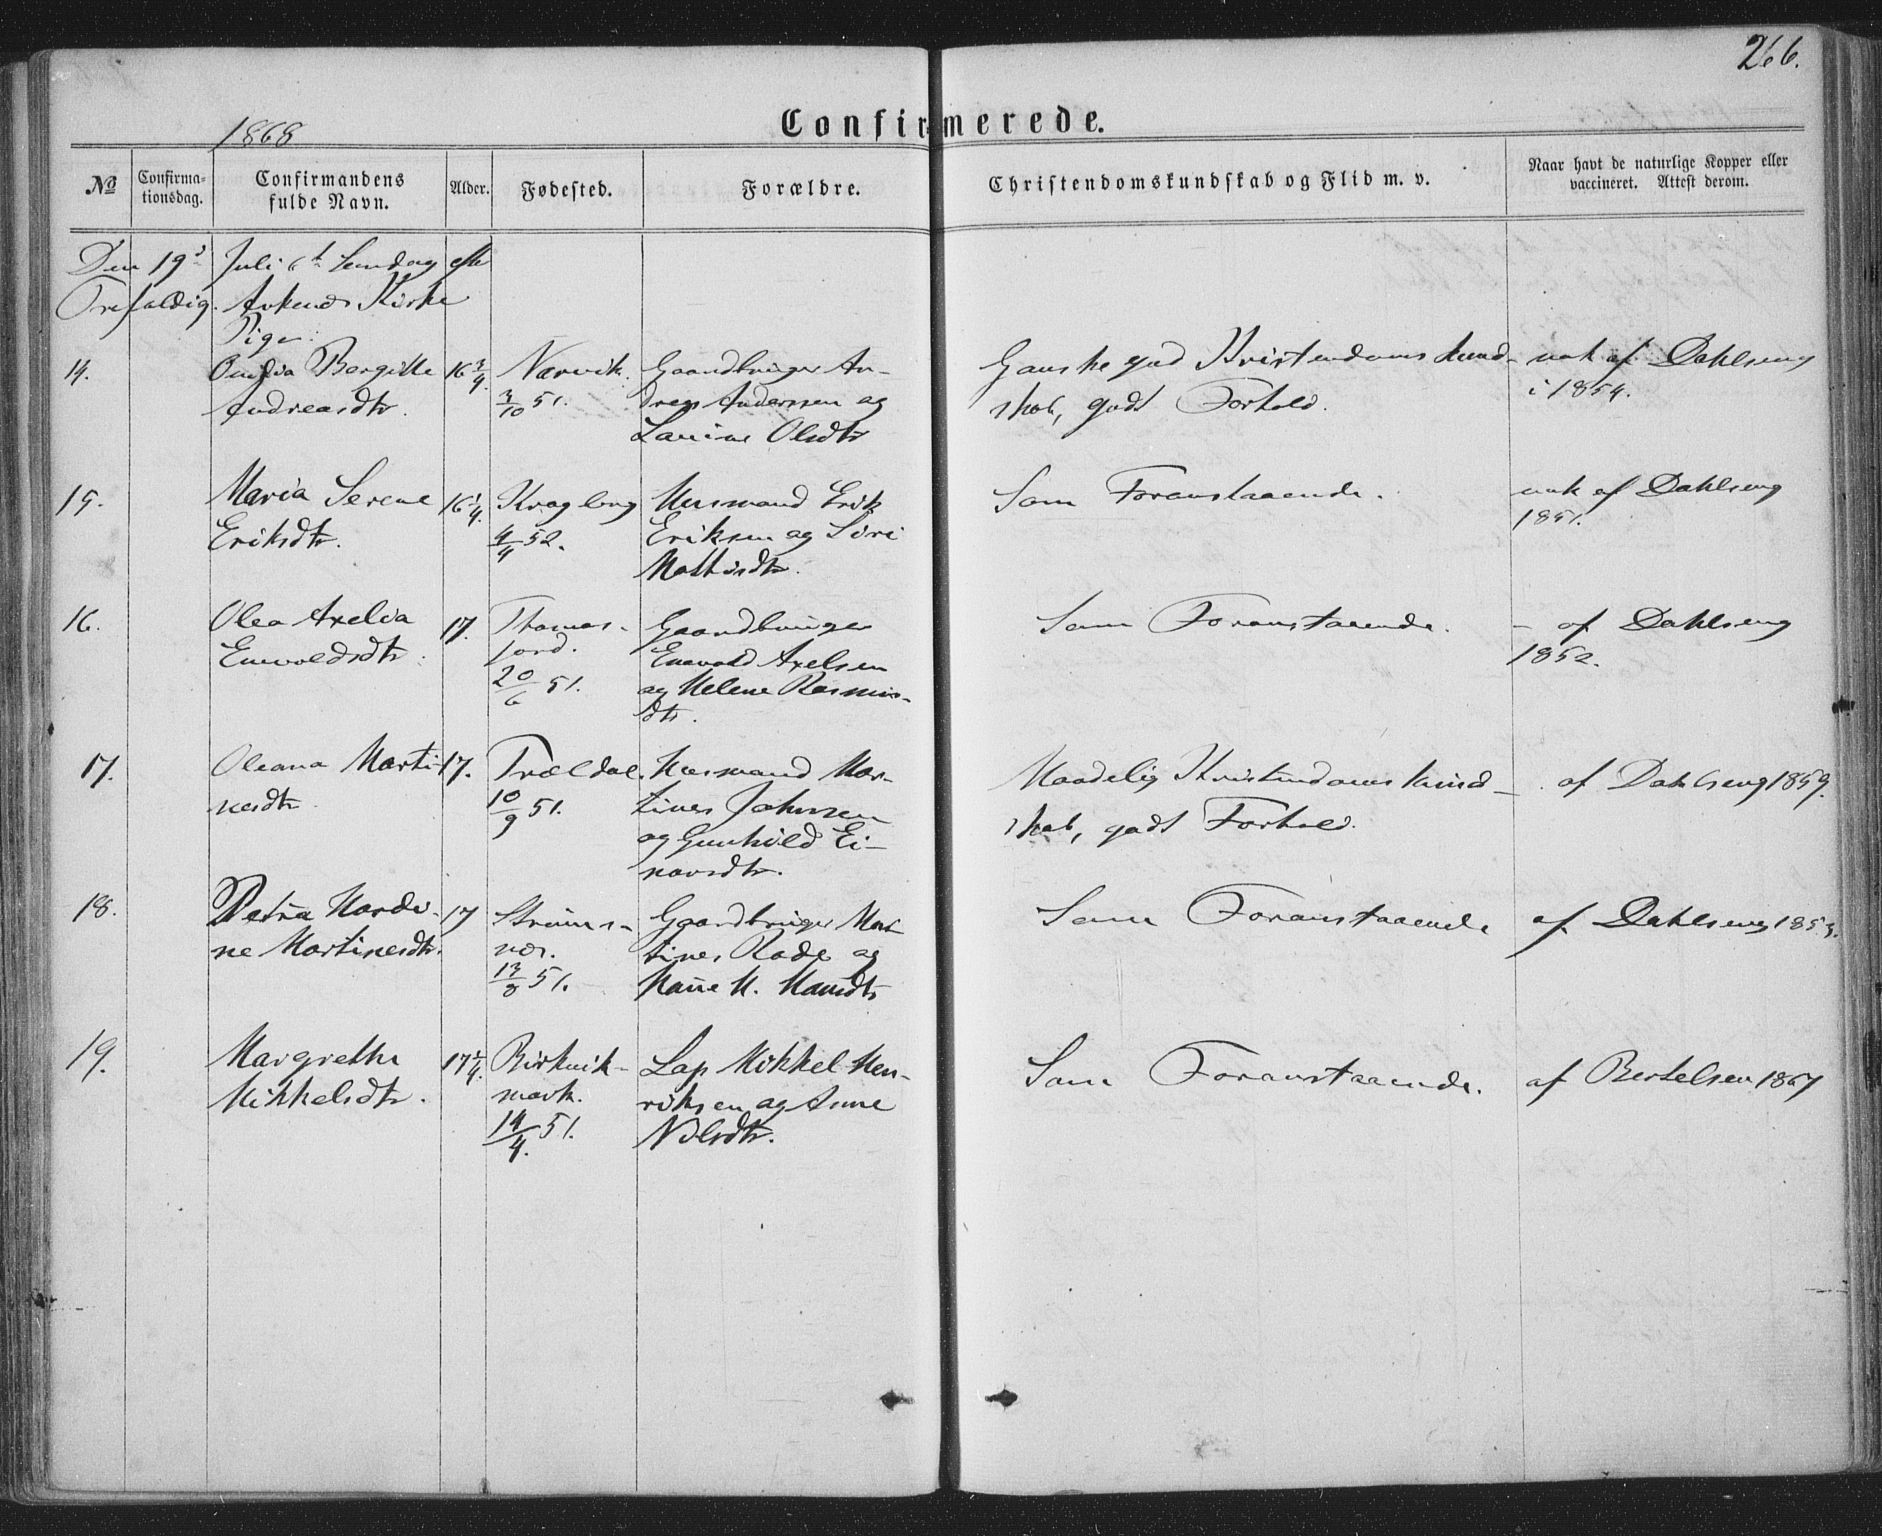 266.
1868
Confirmerede.
No
Confirma-
tionsdag.
Confirmandens
fulde Navn.
Alder.
Fødested.
Forældre.
Christendomskundskab og Flid m. v.
Naar havt de naturlige Kopper eller
vaccineret. Attest derom.
Den 19d Juli 6te Søndag efter
Trefoldig. Ankenes Kirke
Piger:
14.
Bergitte
Andreasdtr.
16 3/4
Narvik.
3/10 51.
Gaardbruger An-
dreas Anderssen og
Laurine Olsdtr
Ganske god Kristendomskund-
skab, godt Forhold.
vak af Dahlseng
i 1854.
15.
Maria Serene
Eriksdtr.
16 1/4.
4/4 52.
Husmand Erik
Eriksen og Siri
Mathisdtr.
Som Foranstaaende.
vak af Dahlseng
16.
Olea Axelia
Enevoldsdtr.
17.
Thomas-
jord.
20/6 51.
Gaardbruger
Enevold Axelsen
og Helene Rasmus-
dtr.
Som Foranstaaende.
- af Dahlseng
1852.
17.
Oleana Marti-
nesdtr
17.
Trældal.
10/9 51.
Husmand Mar-
tines Johnsen
og Gunhild Ei-
narsdtr.
Maadelig Kristendomskund-
skab, godt Forhold.
af Dahlseng 1859.
18.
Petra Harde-
ne Martinesdtr.
17
Strøms-
nes.
13/8 51.
Gaardbruger Mar-
tines Rade og
Hane M. Hansdtr
Som Foranstaaende
af Dahlseng 1853.
19.
Margrethe
Mikkelsdtr.
17 1/4.
Birkvik-
mark.
14/4. 51.
Lap Mikkel Hen-
riksen og Anne
Nilsdtr.
Som Foranstaaende.
af Bertelsen 1867